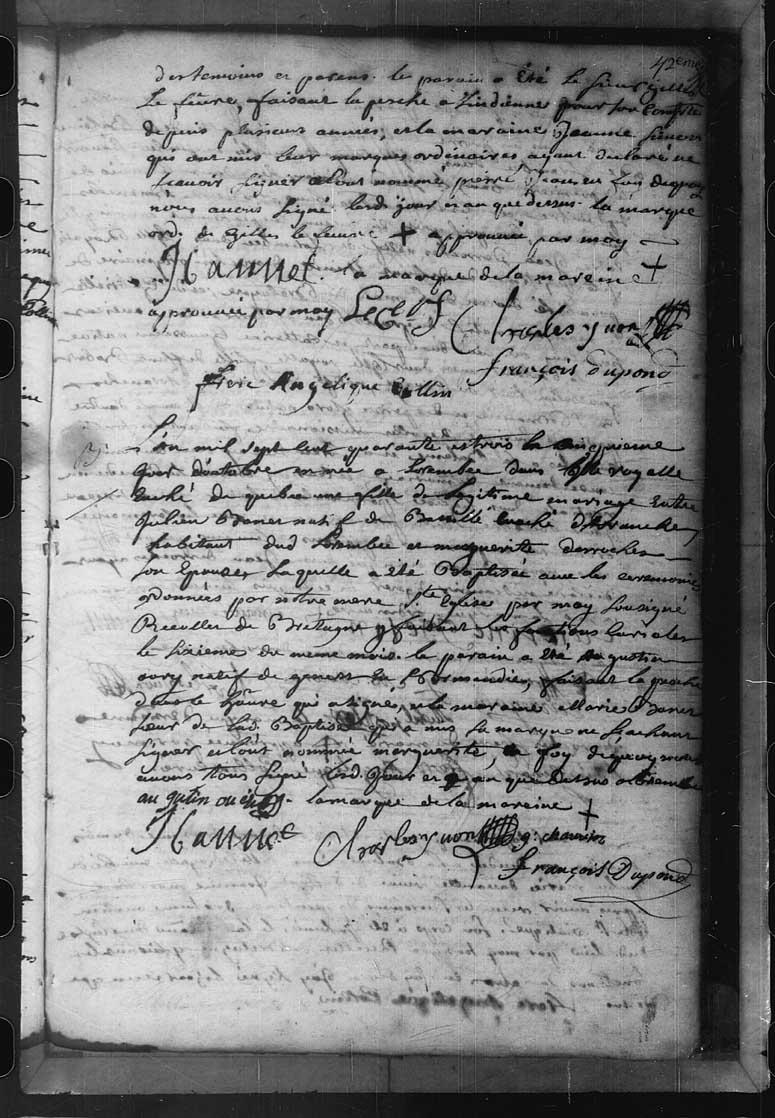 42eme
des temoins et parens. le parain a Été le sieur gilles
Le fiévre, faisant la pesche a l'indienne pour son Compte
depuis plusieurs années, et la maraine Jeanne
qui ont mis leur marques ordinaires, ayant declaré ne
scavoir signer et l'ont nommé pierre en foy dequoy
nous avons signé lesd. jour et an que dessus. la marque
ord. de Gilles le fievre + approuvée par moy
Hannot. la marque de la mareine +
approuvée par moy Charles yvon
françois dupond
frere Angelique Collin
B.
L'an mil sept cent quarante et trois le Cinquieme
jour d'octobre est née a Lorembec dans l'isle royalle
Evêché de quebec une fille du legitime mariage entre
Julien Banet natif de Baville Evêché d'Avranche
habitant dud Lorembec et marguerite desroches
son Epouse, Laquelle a été Baptisée avec les ceremonies
ordonnées par notre mere Ste Eglise par moy sousigné
Recollet de Bretagne y faisant les fonctions curiales
le sixieme du meme mois. le parain a été augustin
ovry natif de genest en Normandie, faisant la pesche
dans le hâvre qui a signé, et la maraine Marie Banet
soeur de lad. Baptisée qui a mis sa marque ne scachant
signer et l'ont nommée marguerite, en foy dequoy nous
avons tous signé lesd. Jour et an que dessus a lorembec
augutin ouery. la marque de la mareine +
Hannot Charles yvon g: chauvin
françois Dupond